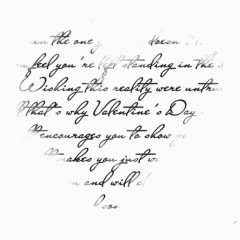 the one doesn
feel you're left standing in the
Wishing this reality were untru
that's why Valentine's Day
encourages you to show ye
makes you just w
and will